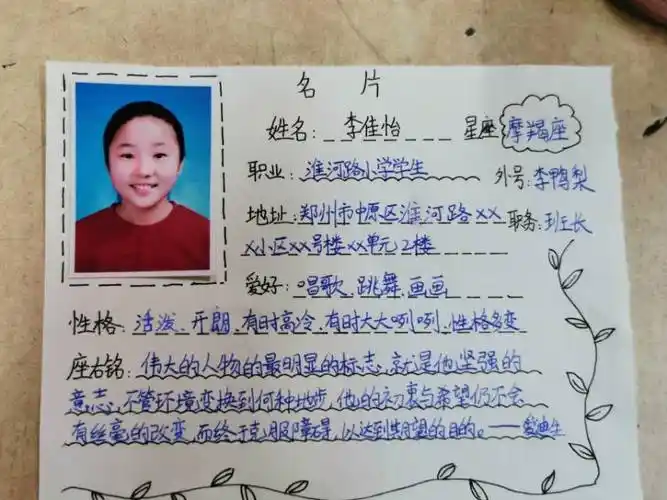 名 片
姓名：李佳怡 星座 摩羯座
职业：淮河路小学学生 外号：李鸭梨
地址：郑州市中原区淮河路×× 职务：班长
×小区××号楼××单元2楼
爱好：唱歌 跳舞 画画
性格：活泼、开朗、有时高冷、有时大大咧咧、性格多变
座右铭：伟大的人物的最明显的标志，就是他坚强的
意志，不管环境变换到何种地步，他的初衷与希望仍不会
有丝毫的改变，而终于克服障碍，以达到期望的目的。——爱迪生